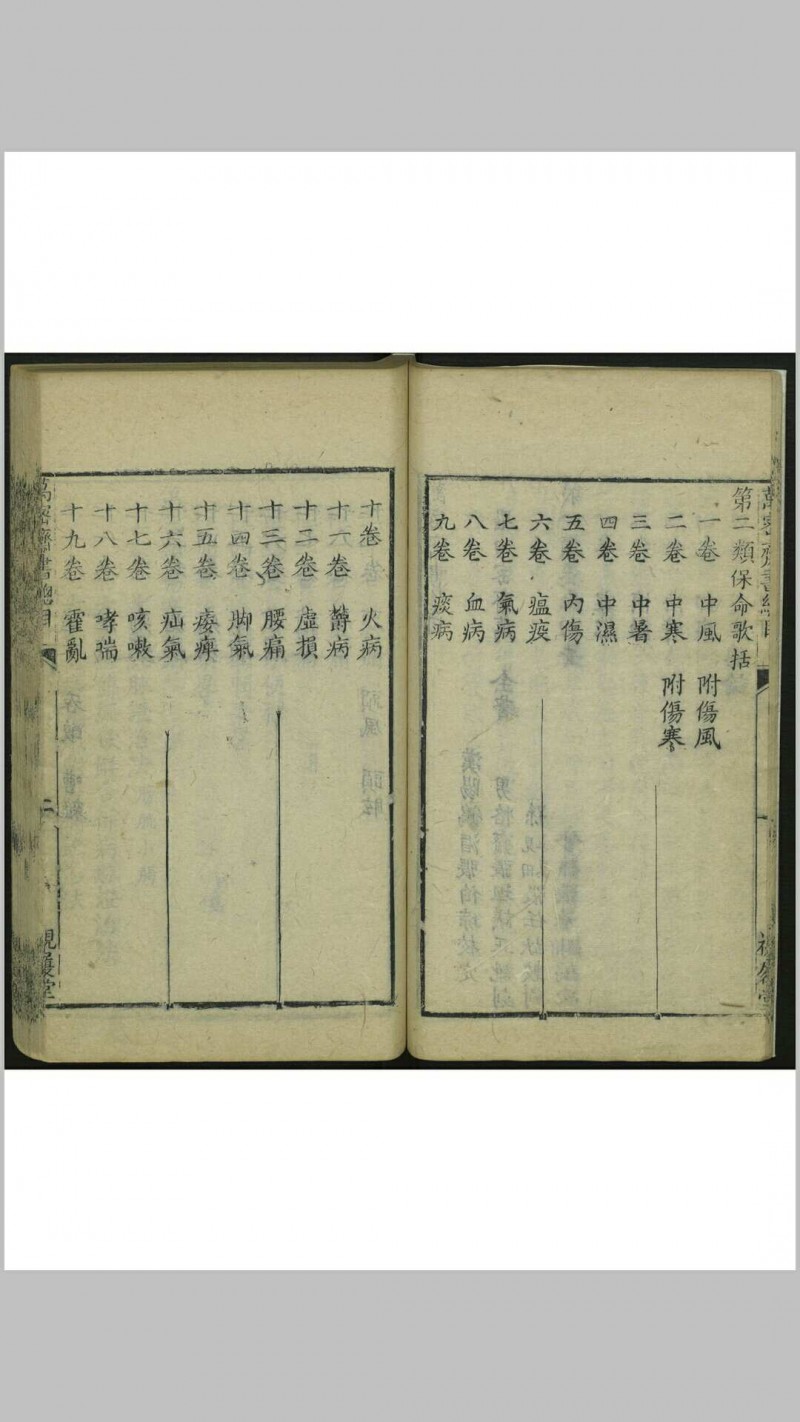 第二類保命歌括
一卷 中風 附傷風
二卷 中寒 附傷寒
三卷 中暑
四卷 中濕
五卷 內傷
六卷 瘟疫
七卷 氣病
八卷 血病
九卷 痰病
十卷 火病
十一卷 鬱病
十二卷 虛損
十三卷 腰痛
十四卷 脚氣
十五卷 痿痺
十六卷 疝氣
十七卷 咳嗽
十八卷 哮喘
十九卷 霍亂
萬密齋書總目 二 視履堂